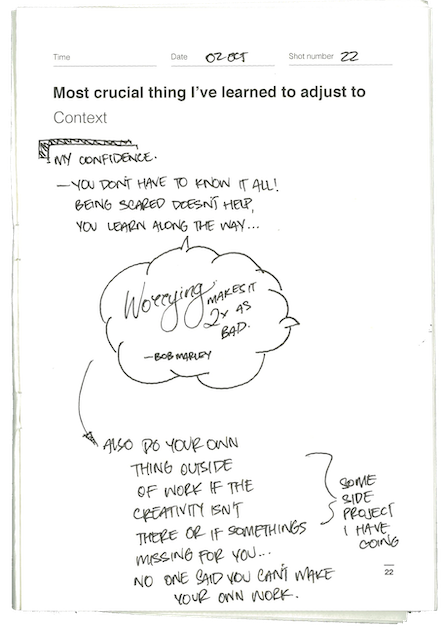 Time Date 02 OCT Shot number 22
Most crucial thing I've learned to adjust to
Context
MY CONFIDENCE.
—YOU DON'T HAVE TO KNOW IT ALL!
BEING SCARED DOESN'T HELP,
YOU LEARN ALONG THE WAY...
Worrying MAKES IT
2x AS
BAD.
—BOB MARLEY
ALSO DO YOUR OWN
THING OUTSIDE
OF WORK IF THE
CREATIVITY ISN'T
THERE OR IF SOMETHINGS
MISSING FOR YOU...
NO ONE SAID YOU CAN'T MAKE
YOUR OWN WORK.
SOME
SIDE
PROJECT
I HAVE
GOING
22